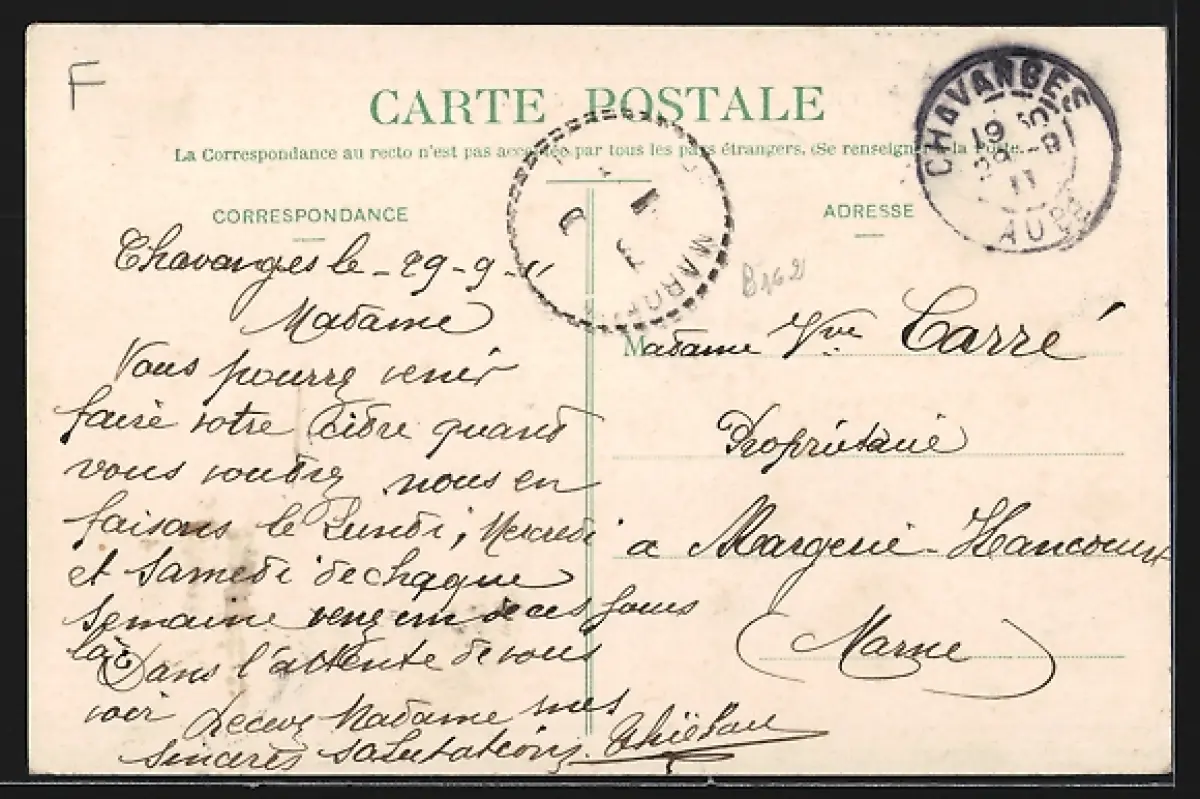 F
CARTE POSTALE
La Correspondance au recto n'est pas acceptée par tous les pays étrangers. (Se renseigner à la Poste.
CHAVANGES
19
29 -9
11
AUBE
CORRESPONDANCE
ADRESSE
B162
Chavanges le - 29-9-11
Madame
Vous pourrez venir
faire votre Cidre quand
vous voudrez nous en
faisons le Lundi, Mercredi
et Samedi de chaque
Semaine venez un de ces jours
là
Dans l'attente de vous
voir Recevez Madame mes
sincères salutations Thiébau
Madame Vve Carré
Propriétaire
a Margerie-Hancourt
(Marne)